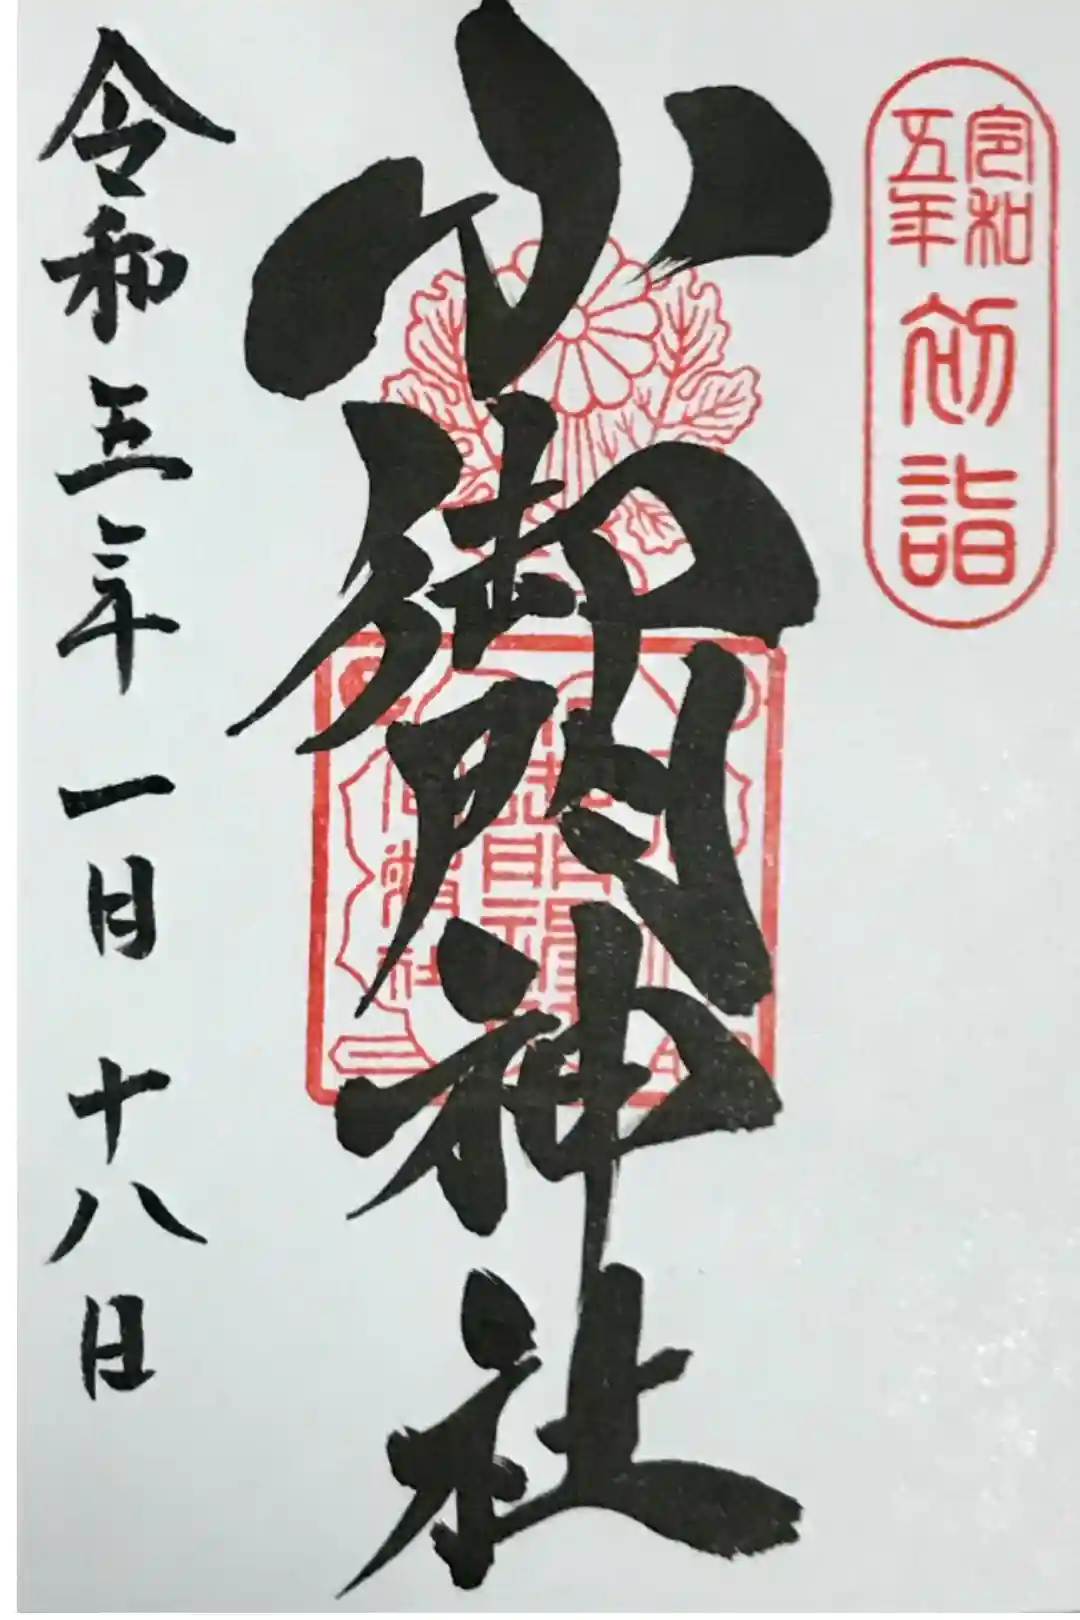 令和
五年
初詣
小御門神社
令和五年一月十八日